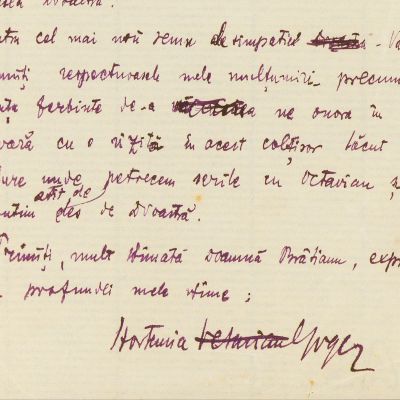 Doastră.
cel mai nou semn de simpatie
respectuoasele mele mulțumiri, precum
fierbinte de-a ne onora în
vară cu o vizită în acest colțișor tăcut
unde petrecem serile cu Octavian și
atât de des de Dvoastră.
Primiți, mult stimată Doamnă Brătianu, expr
profundei mele stime:
Hortensia Goga